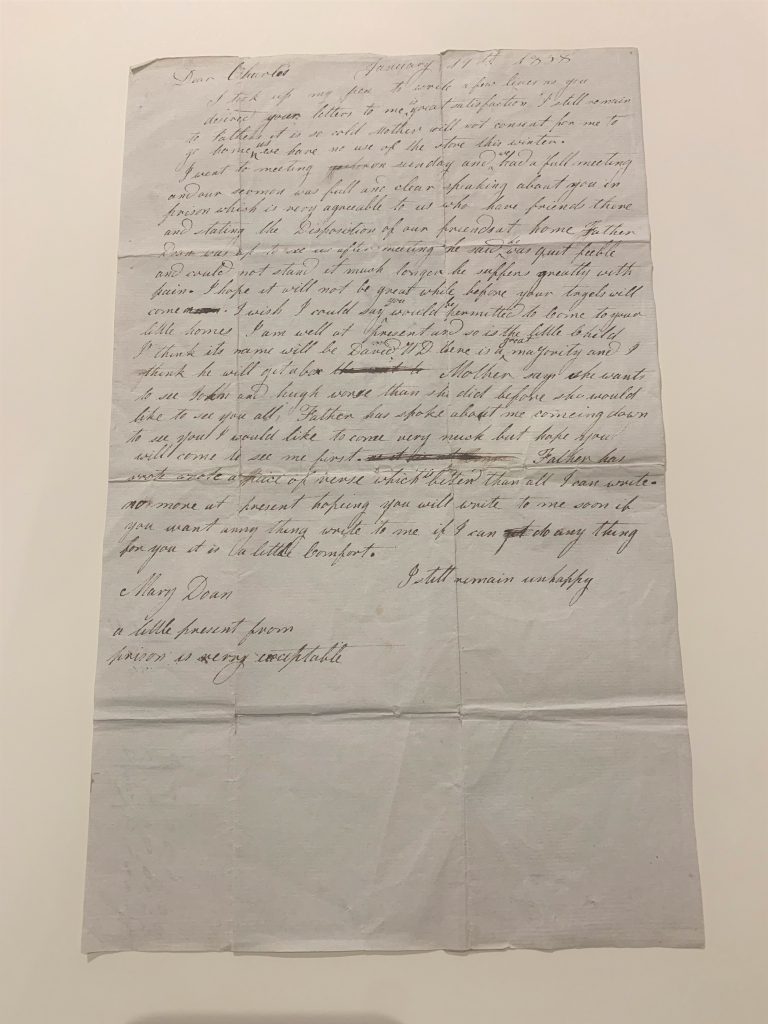 Dear Charles January 17th 1838
I took up my pen to write a few lines as you
desired your letters to me great satisfaction I still remain
to fathers it is so cold Mother will not consent for me to
go home we have no use of the stove this winter.
I went to meeting on sunday and we had a full meeting
and our sermon was full and clear speaking about you in
prison which is very agreeable to us who have friends there
and stating the Disposition of our friends at home Father
Doan was up to see us after meeting he said he was quit feeble
and could not stand it much longer he suffers greatly with
pain. I hope it will not be great while before your tryels will
come . I wish I could say you would be permitted to come to your
little homes I am well at present and so is the little child
I think its name will be David W D there is a great majority and I
think he will Mother says she wants
to see John and hugh worse than she did before she would
like to see you all, Father has spoke about me comeing down
to see you I would like to come very much but hope you
will come to see me first. Father has
wrote a piece of verse which is better than all I can write.
no more at present hopeing you will write to me soon if
you want anny thing write to me if I can do any thing
for you it is a little Comfort.
I still remain unhappy
Mary Doan
a little present from
prison is very exceptable